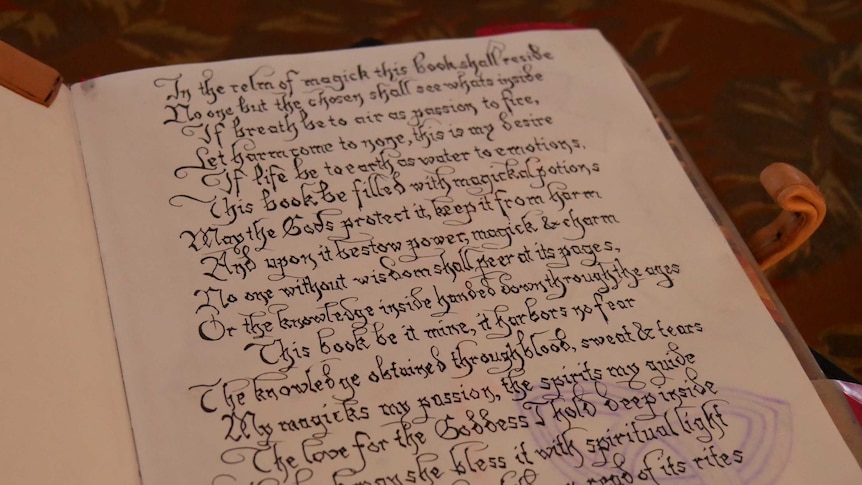 In the relm of magick this book shall reside
No one but the chosen shall see whats inside
If breath be to air as passion to fire,
Let harm come to none, this is my desire
If life be to earth as water to emotions,
This book be filled with magickal potions
May the Gods protect it, keep it from harm
And upon it bestow power, magick & charm
No one without wisdom shall peer at its pages,
Or the knowledge inside handed down through the ages
This book be it mine, it harbors no fear
The knowledge obtained through blood, sweat & tears
My magicks my passion, the spirits my guide
The love for the Goddess I hold deep inside
she bless it with spiritual light
read of its rites